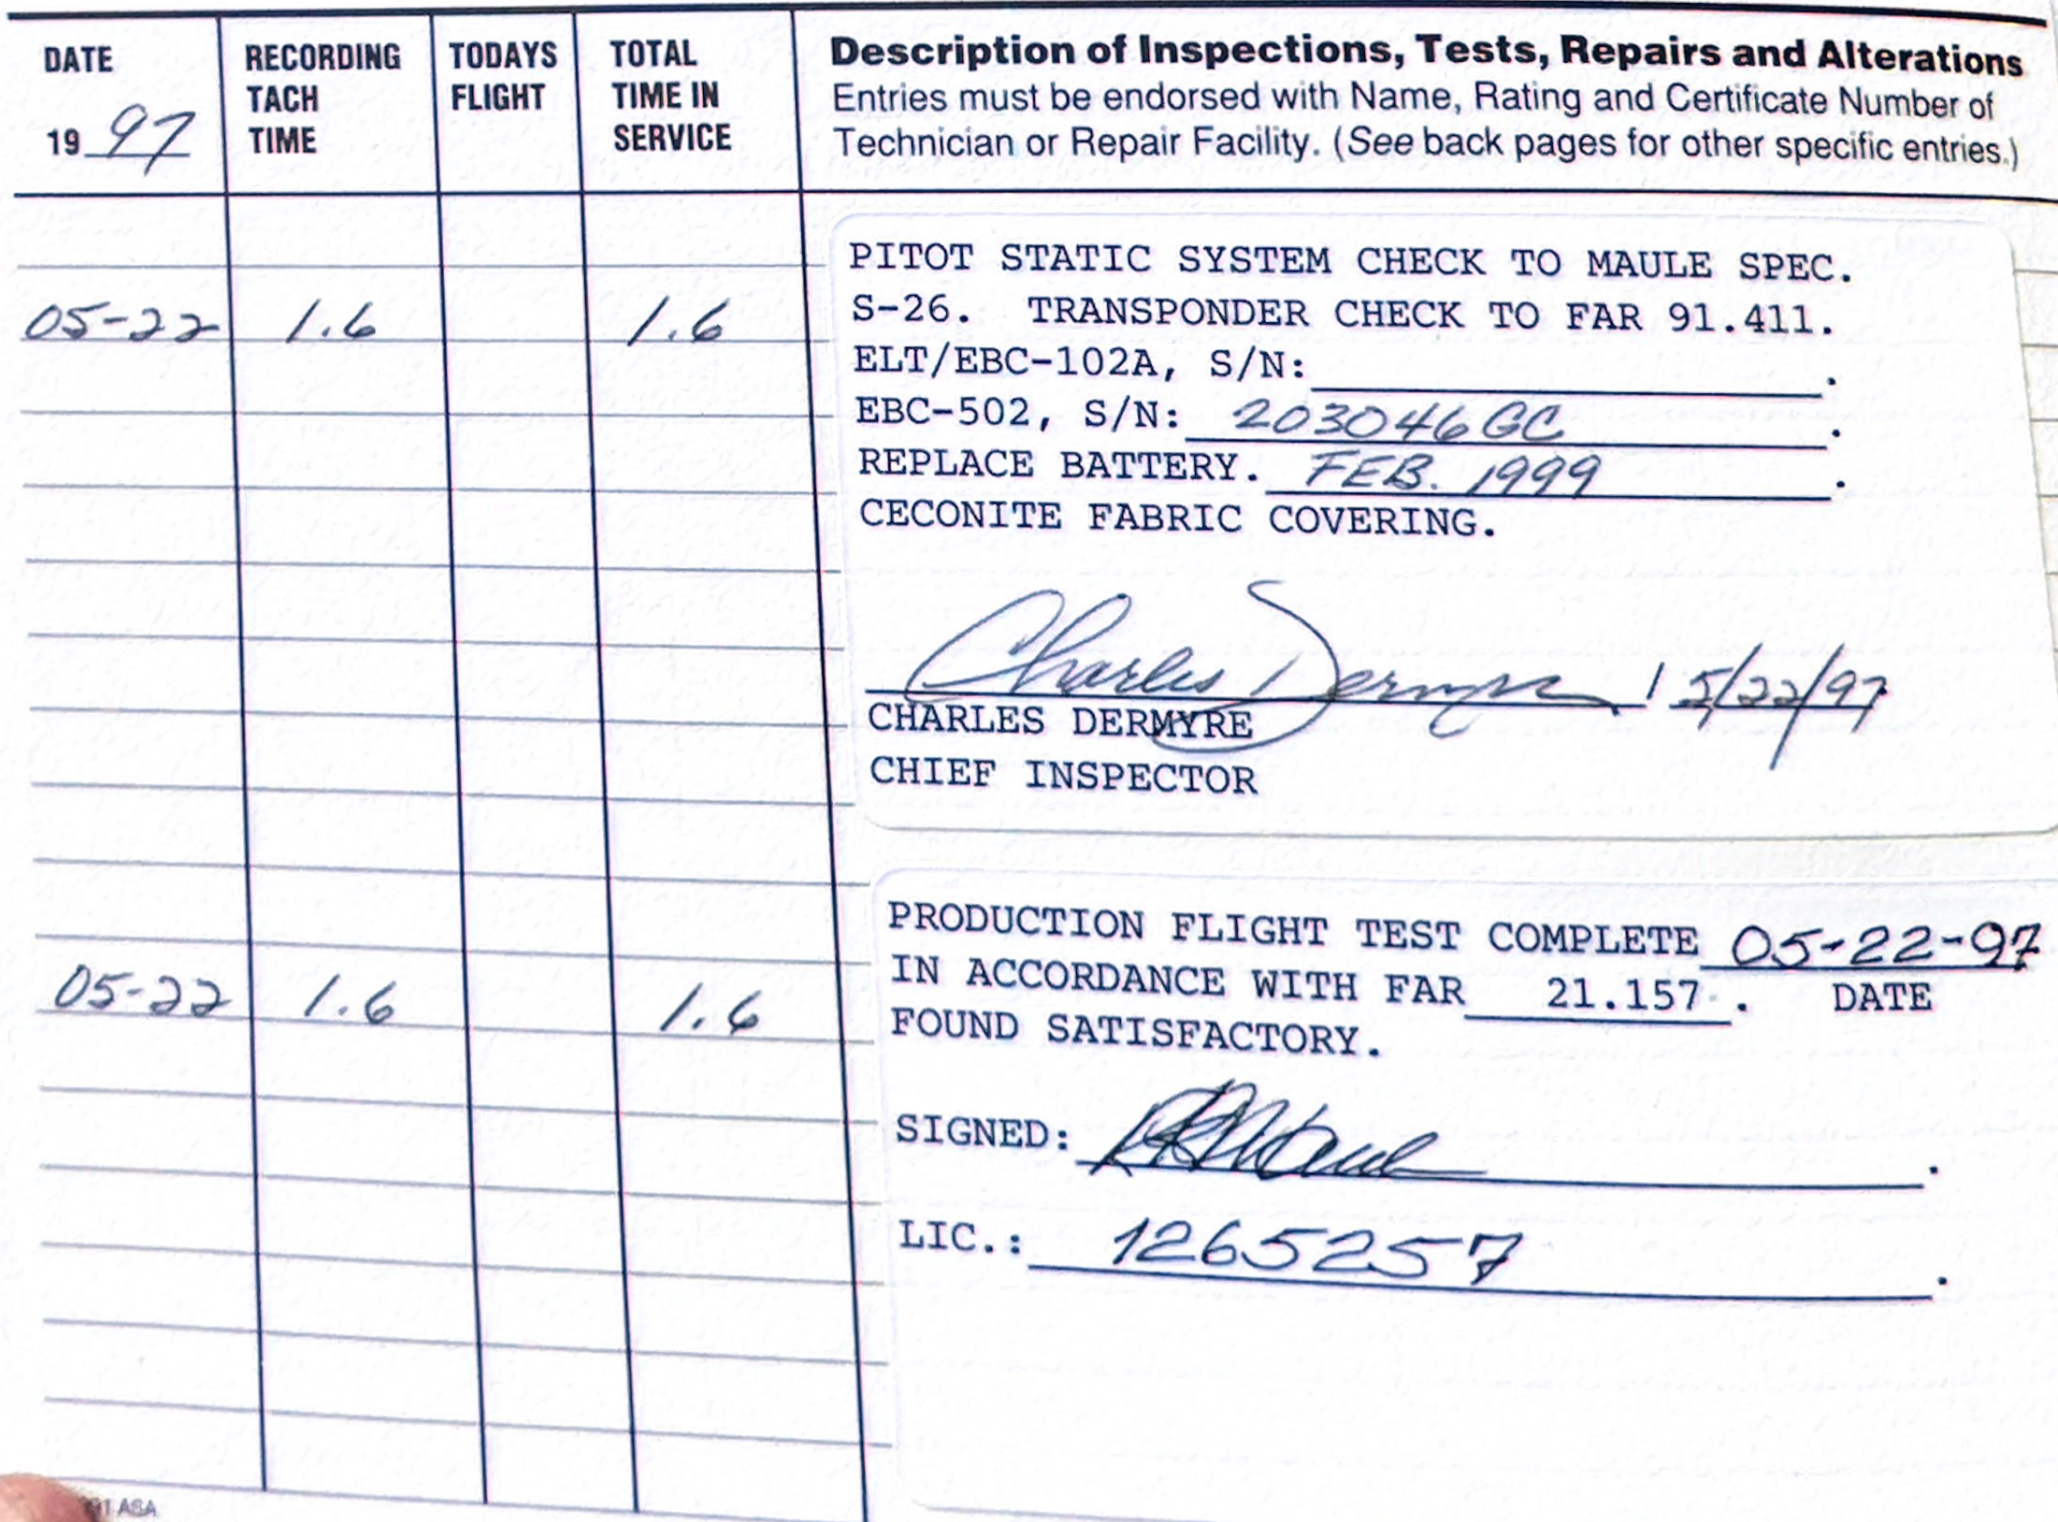 DATE
19 97
RECORDING
TACH
TIME
TODAYS
FLIGHT
TOTAL
TIME IN
SERVICE
Description of Inspections, Tests, Repairs and Alterations
Entries must be endorsed with Name, Rating and Certificate Number of
Technician or Repair Facility. (See back pages for other specific entries.)
05-22 1.6 1.6
PITOT STATIC SYSTEM CHECK TO MAULE SPEC.
S-26. TRANSPONDER CHECK TO FAR 91.411.
ELT/EBC-102A, S/N: .
EBC-502, S/N: 203046GC .
REPLACE BATTERY. FEB. 1999 .
CECONITE FABRIC COVERING.
Charles Dermyre / 5/22/97
CHARLES DERMYRE
CHIEF INSPECTOR
05-22 1.6 1.6
PRODUCTION FLIGHT TEST COMPLETE 05-22-97
IN ACCORDANCE WITH FAR 21.157 . DATE
FOUND SATISFACTORY.
SIGNED: .
LIC.: 1265257 .
ASA